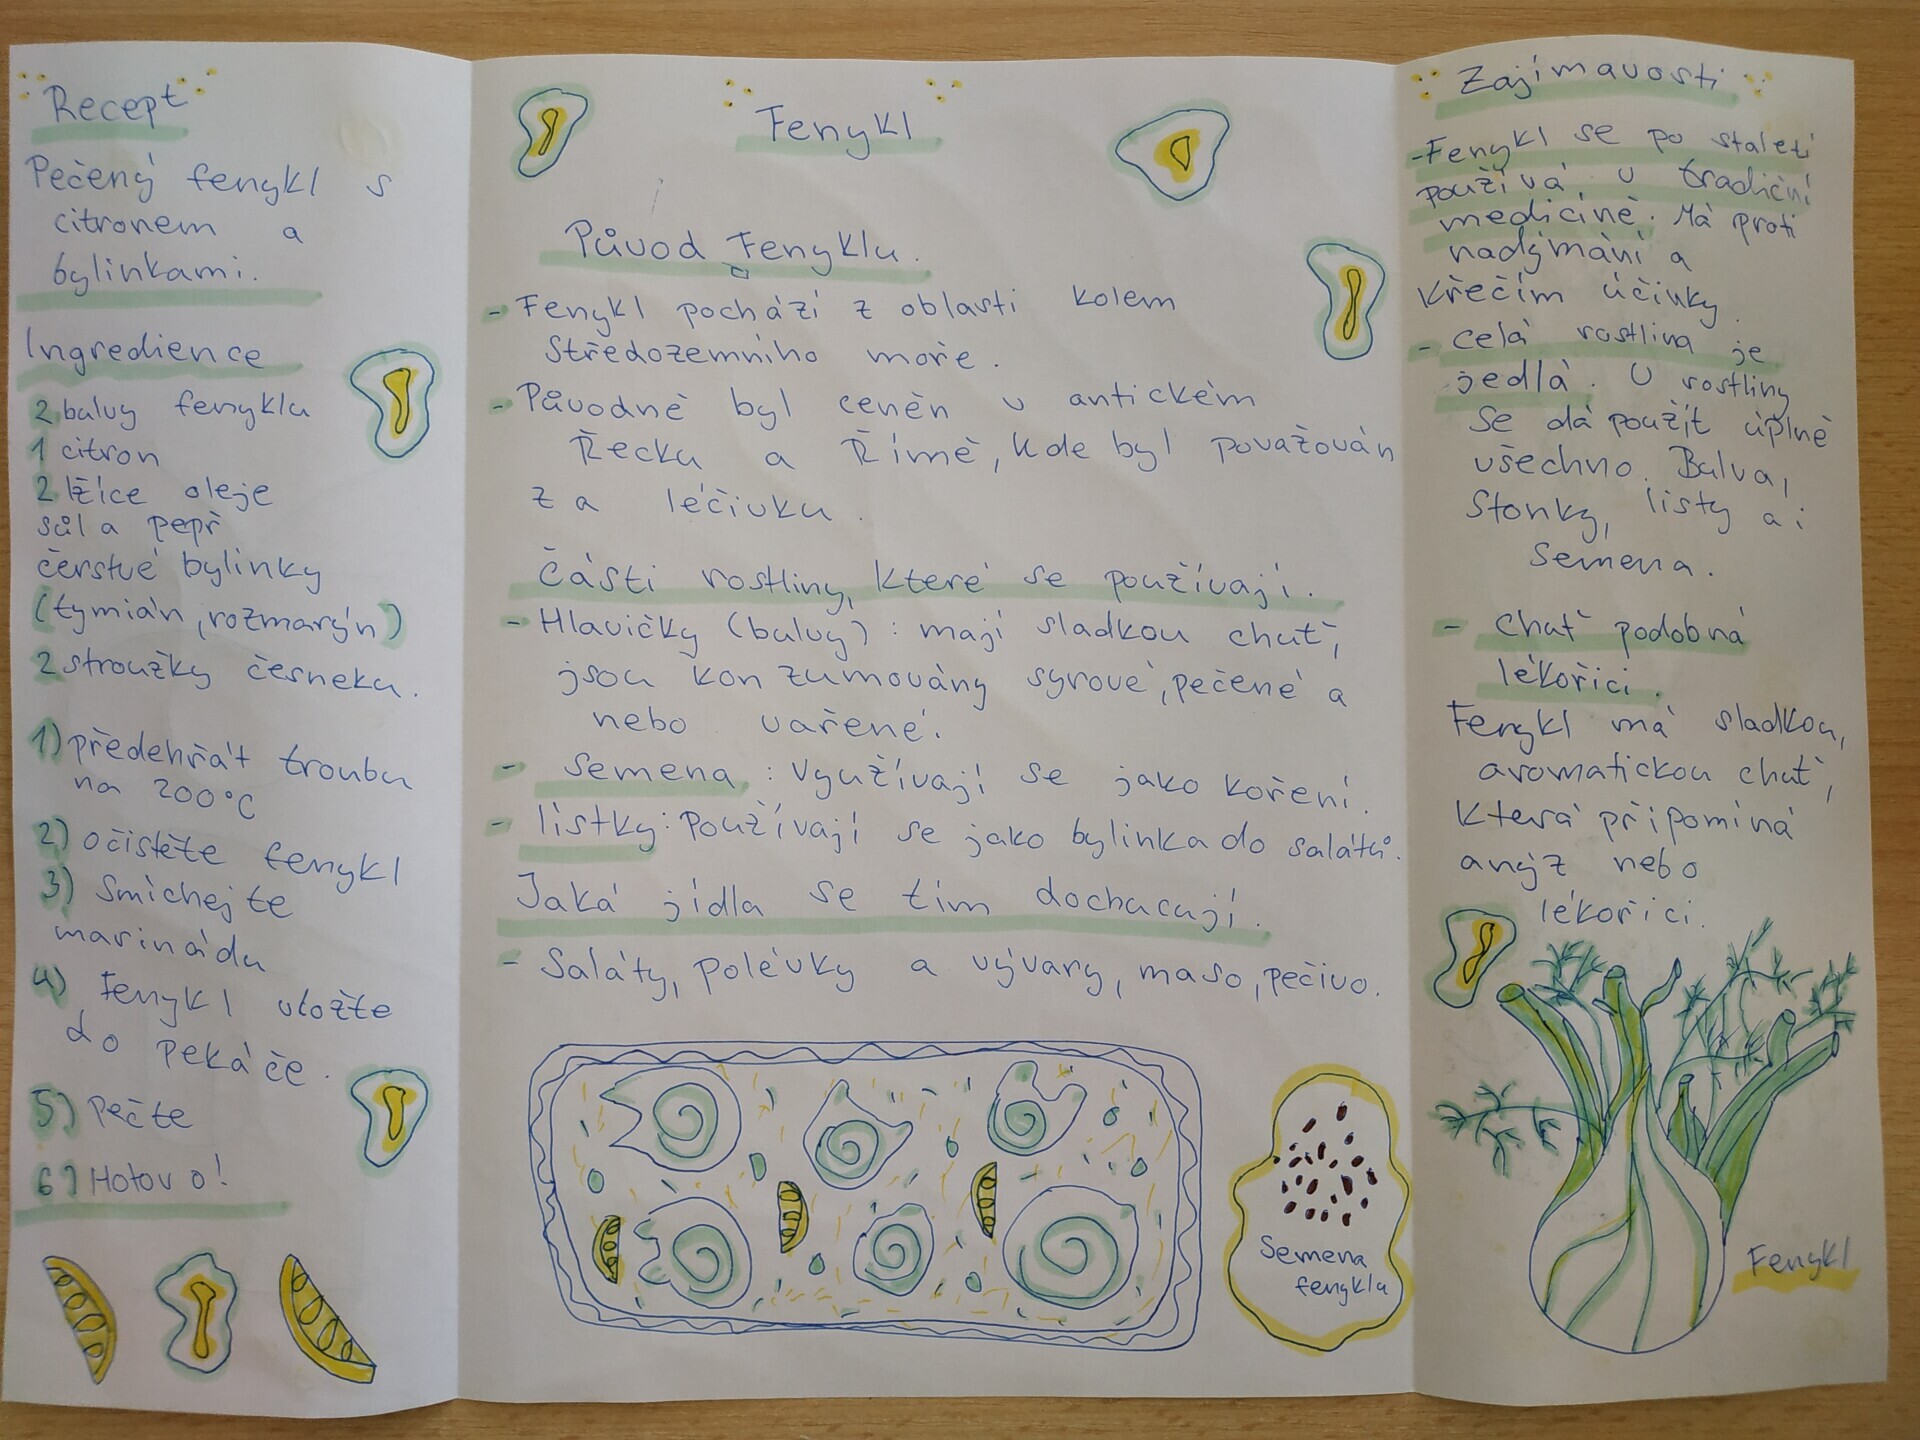 Recept
Pečený fengkl s
citronem a
bylinkami.
Ingredience
2 bulvy fenyklu
1 citron
2 lžíce oleje
sůl a pepř
čerstvé bylinky
(tymián, rozmarýn)
2 stroužky česneku.
1) předehřát troubu
na 200°C
2) očistěte fenykl
3) Smíchejte
marinádu
4) Fenykl vložte
do pekáče.
5) Pečte
6) Hotovo!
Fenykl
Původ Fenyklu.
- Fenykl pochází z oblasti kolem
Středozemního moře.
- Původně byl ceněn v antickém
Řecku a Římě, kde byl považován
za léčivku.
Části rostliny, které se používají.
- Hlavičky (bulvy): mají sladkou chuť,
jsou konzumovány syrové, pečené a
nebo vařené.
- semena: Využívají se jako koření.
- lístky: Používají se jako bylinka do salátů.
Jaká jídla se tím dochucají.
- Saláty, polévky a vývary, maso, pečivo.
Semena
fenyklu
Zajímavosti
- Fenykl se po staletí
používá v tradiční
medicíně. Má proti
nadýmání a
křečím účinky.
- celá rostlina je
jedlá. U rostliny
se dá použít úplně
všechno. Bulva,
Stonky, listy a i
semena.
- chuť podobná
lékořici.
Fenykl má sladkou,
aromatickou chuť,
která připomíná
anýz nebo
lékořici.
Fenykl